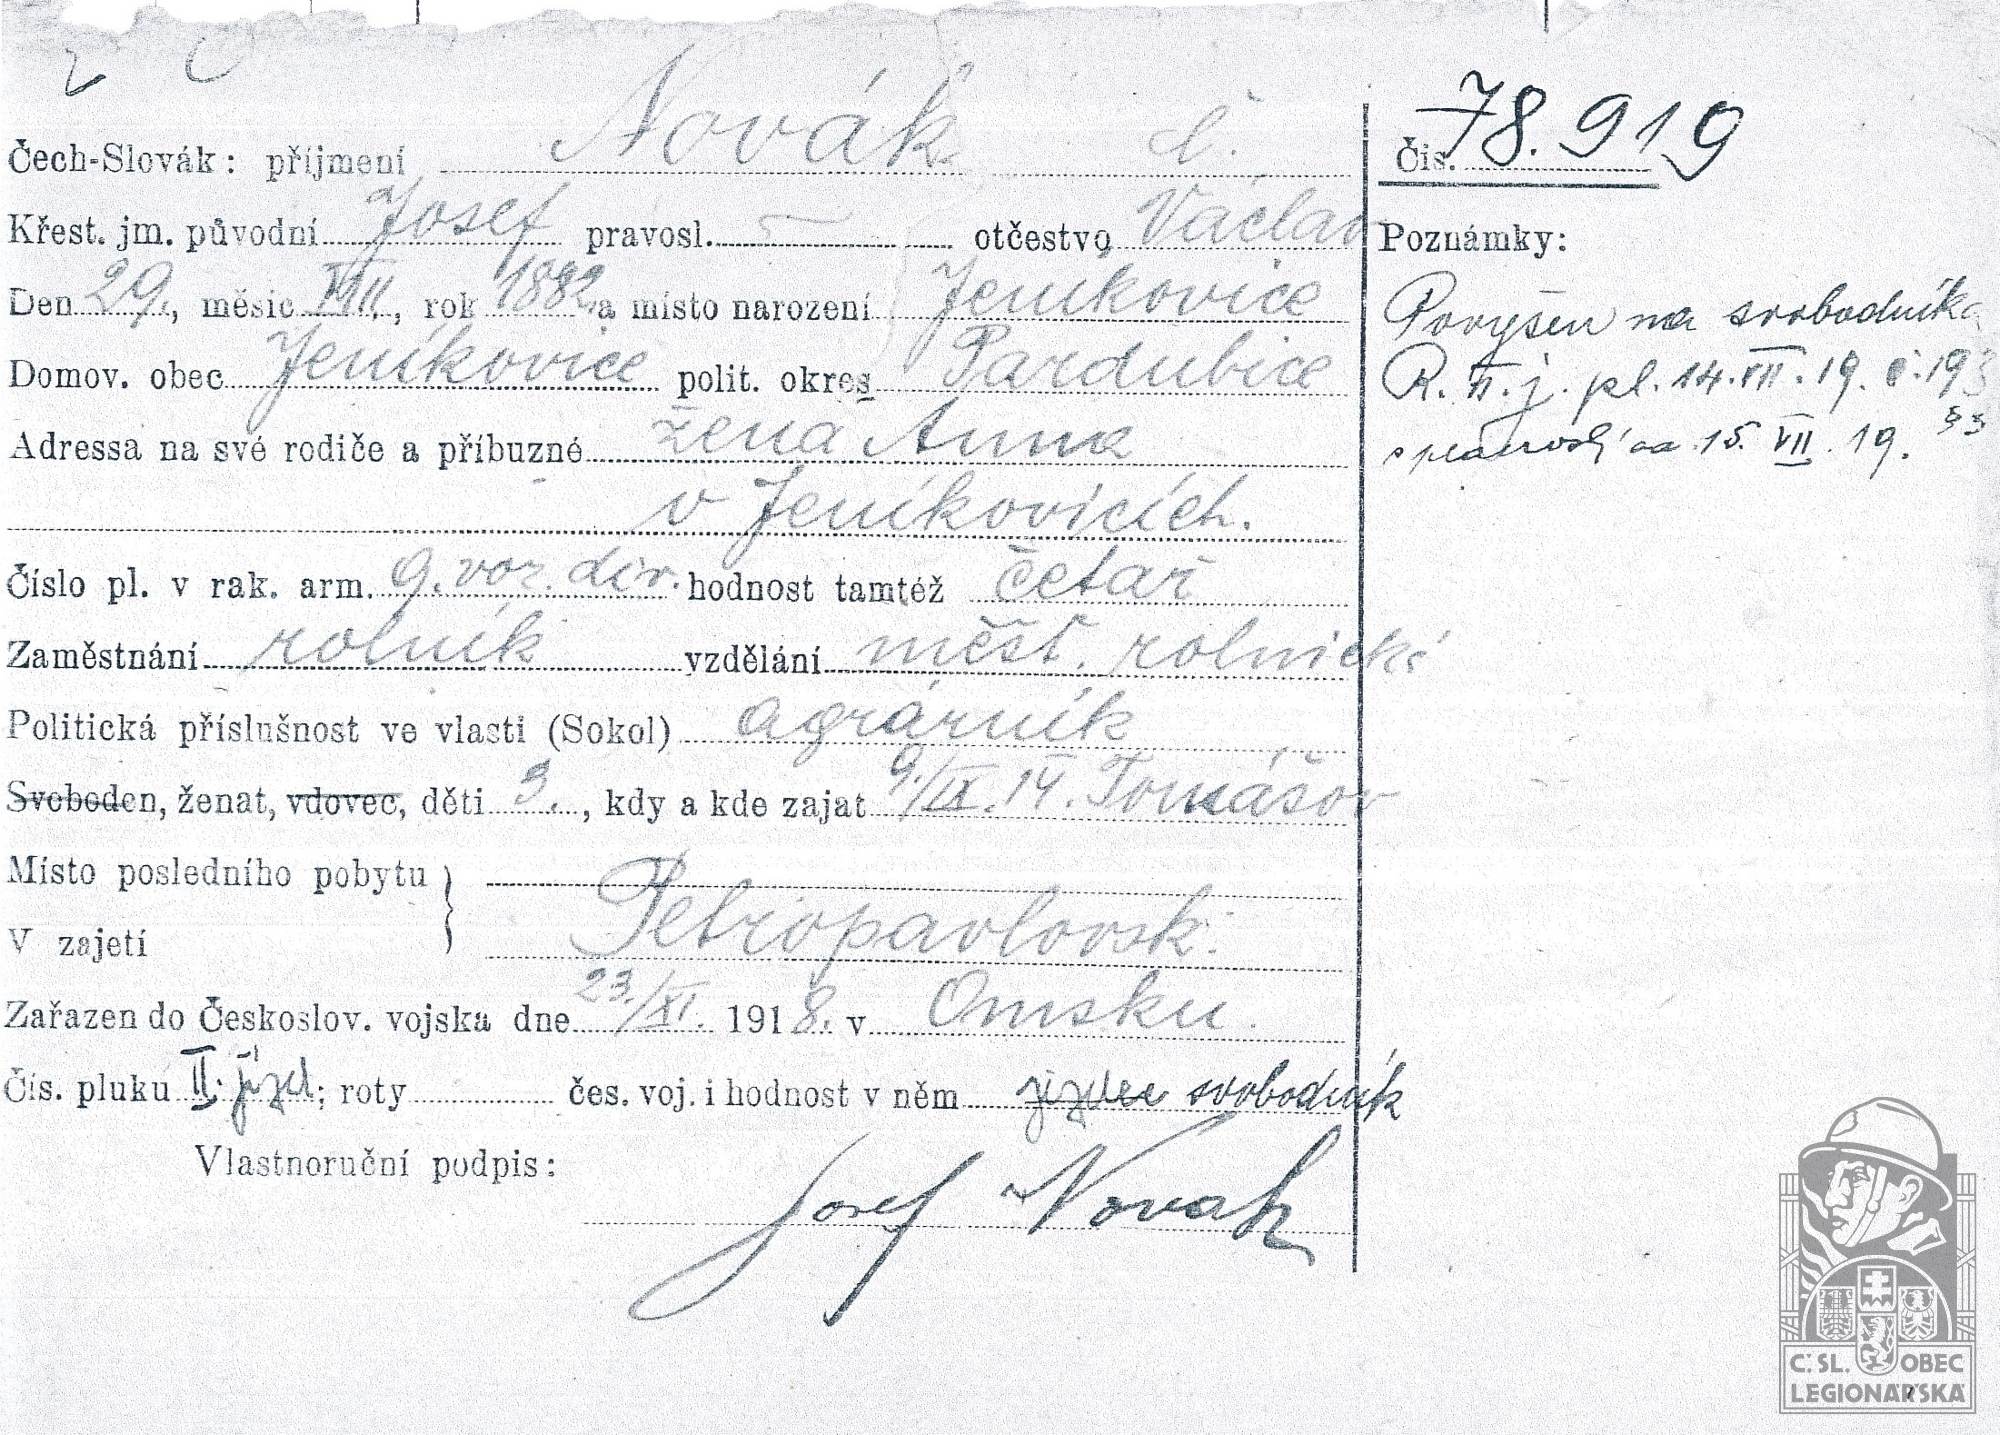 Novák č.
Čech-Slovák: příjmení
Čís. 78.919
Křest. jm. původní Josef pravosl. – otčestvo Václav
Poznámky:
Den 29., měsíc VIII, rok 1882 a místo narození Jeníkovice
Povýšen na svobodníka
Domov. obec Jeníkovice polit. okres Pardubice
R. II. j. pl. 14. VII. 19. č. 193
Adressa na své rodiče a příbuzné žena Anna
s platností od 15. VII. 19. § 3
v Jeníkovicích.
Číslo pl. v rak. arm. 9. voz. div. hodnost tamtéž četař
Zaměstnání rolník vzdělání měšť. rolnická
Politická příslušnost ve vlasti (Sokol) agrárník
Svoboden, ženat, vdovec, děti 3., kdy a kde zajat 9./IX. 14. Tomášov
Místo posledního pobytu
V zajetí Petropavlovsk.
Zařazen do Českoslov. vojska dne 23./XI. 1918. v Omsku.
Čís. pluku II. jízd.; roty čes. voj. i hodnost v něm jízdec svobodník
Vlastnoruční podpis:
Josef Novak
Č.SL. OBEC
LEGIONÁŘSKÁ